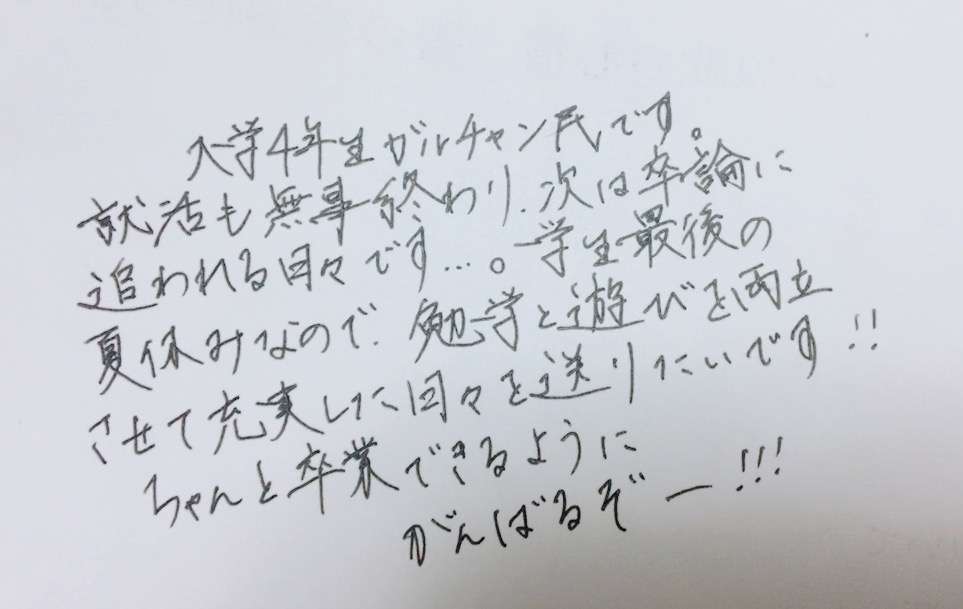 大学4年生ガルチャン民です。
就活も無事終わり、次は卒論に
追われる日々です…。学生最後の
夏休みなので、勉学と遊びを両立
させて充実した日々を送りたいです!!
ちゃんと卒業できるように
がんばるぞー!!!